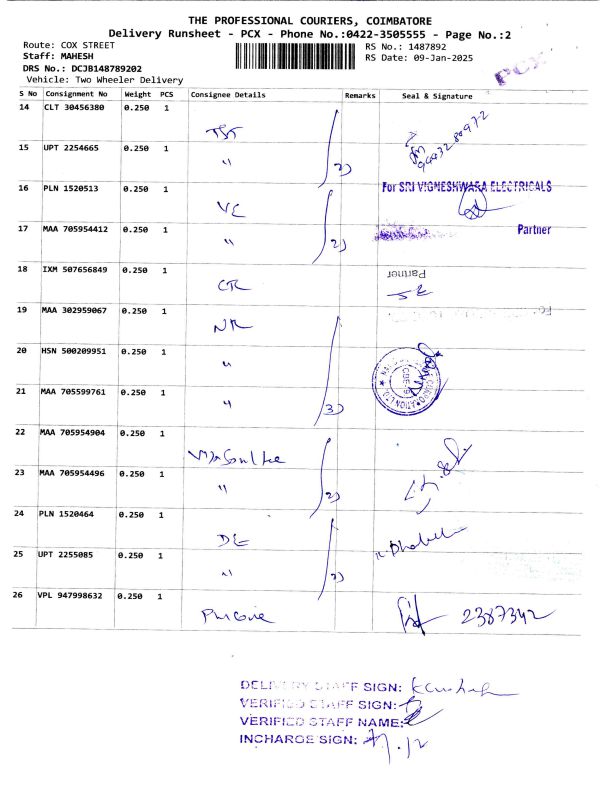 THE PROFESSIONAL COURIERS, COIMBATORE
Delivery Runsheet - PCX - Phone No.:0422-3505555 - Page No.:2
Route: COX STREET
Staff: MAHESH
DRS No.: DCJB148789202
Vehicle: Two Wheeler Delivery
RS No.: 1487892
RS Date: 09-Jan-2025
PCX
S No Consignment No Weight PCS Consignee Details Remarks Seal & Signature
14 CLT 30456380 0.250 1
15 UPT 2254665 0.250 1 " 2)
16 PLN 1520513 0.250 1 VE
For SRI VIGNESHWARA ELECTRICALS
17 MAA 705954412 0.250 1 " 2)
Partner
18 IXM 507656849 0.250 1 CTR
Partner
19 MAA 302959067 0.250 1 NR
20 HSN 500209951 0.250 1 "
21 MAA 705599761 0.250 1 " 3)
22 MAA 705954904 0.250 1
23 MAA 705954496 0.250 1 " 2)
24 PLN 1520464 0.250 1 DE
25 UPT 2255085 0.250 1 " 2)
26 VPL 947998632 0.250 1 2387342
DELIVERY STAFF SIGN:
VERIFIED STAFF SIGN:
VERIFIED STAFF NAME:
INCHARGE SIGN: